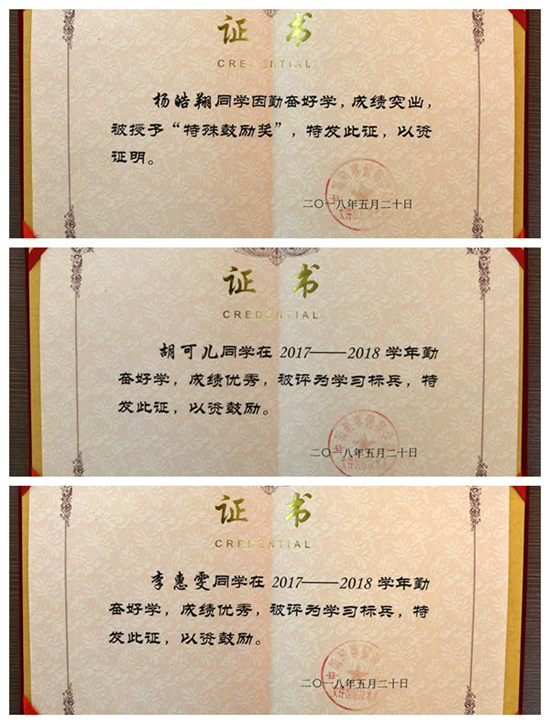 证 书
CREDENTIAL
杨皓翔同学因勤奋好学，成绩突出，
被授予“特殊鼓励奖”，特发此证，以资
证明。
二〇一八年五月二十日
证 书
CREDENTIAL
胡可儿同学在 2017——2018 学年勤
奋好学，成绩优秀，被评为学习标兵，特
发此证，以资鼓励。
二〇一八年五月二十日
证 书
CREDENTIAL
李惠雯同学在 2017——2018 学年勤
奋好学，成绩优秀，被评为学习标兵，特
发此证，以资鼓励。
二〇一八年五月二十日